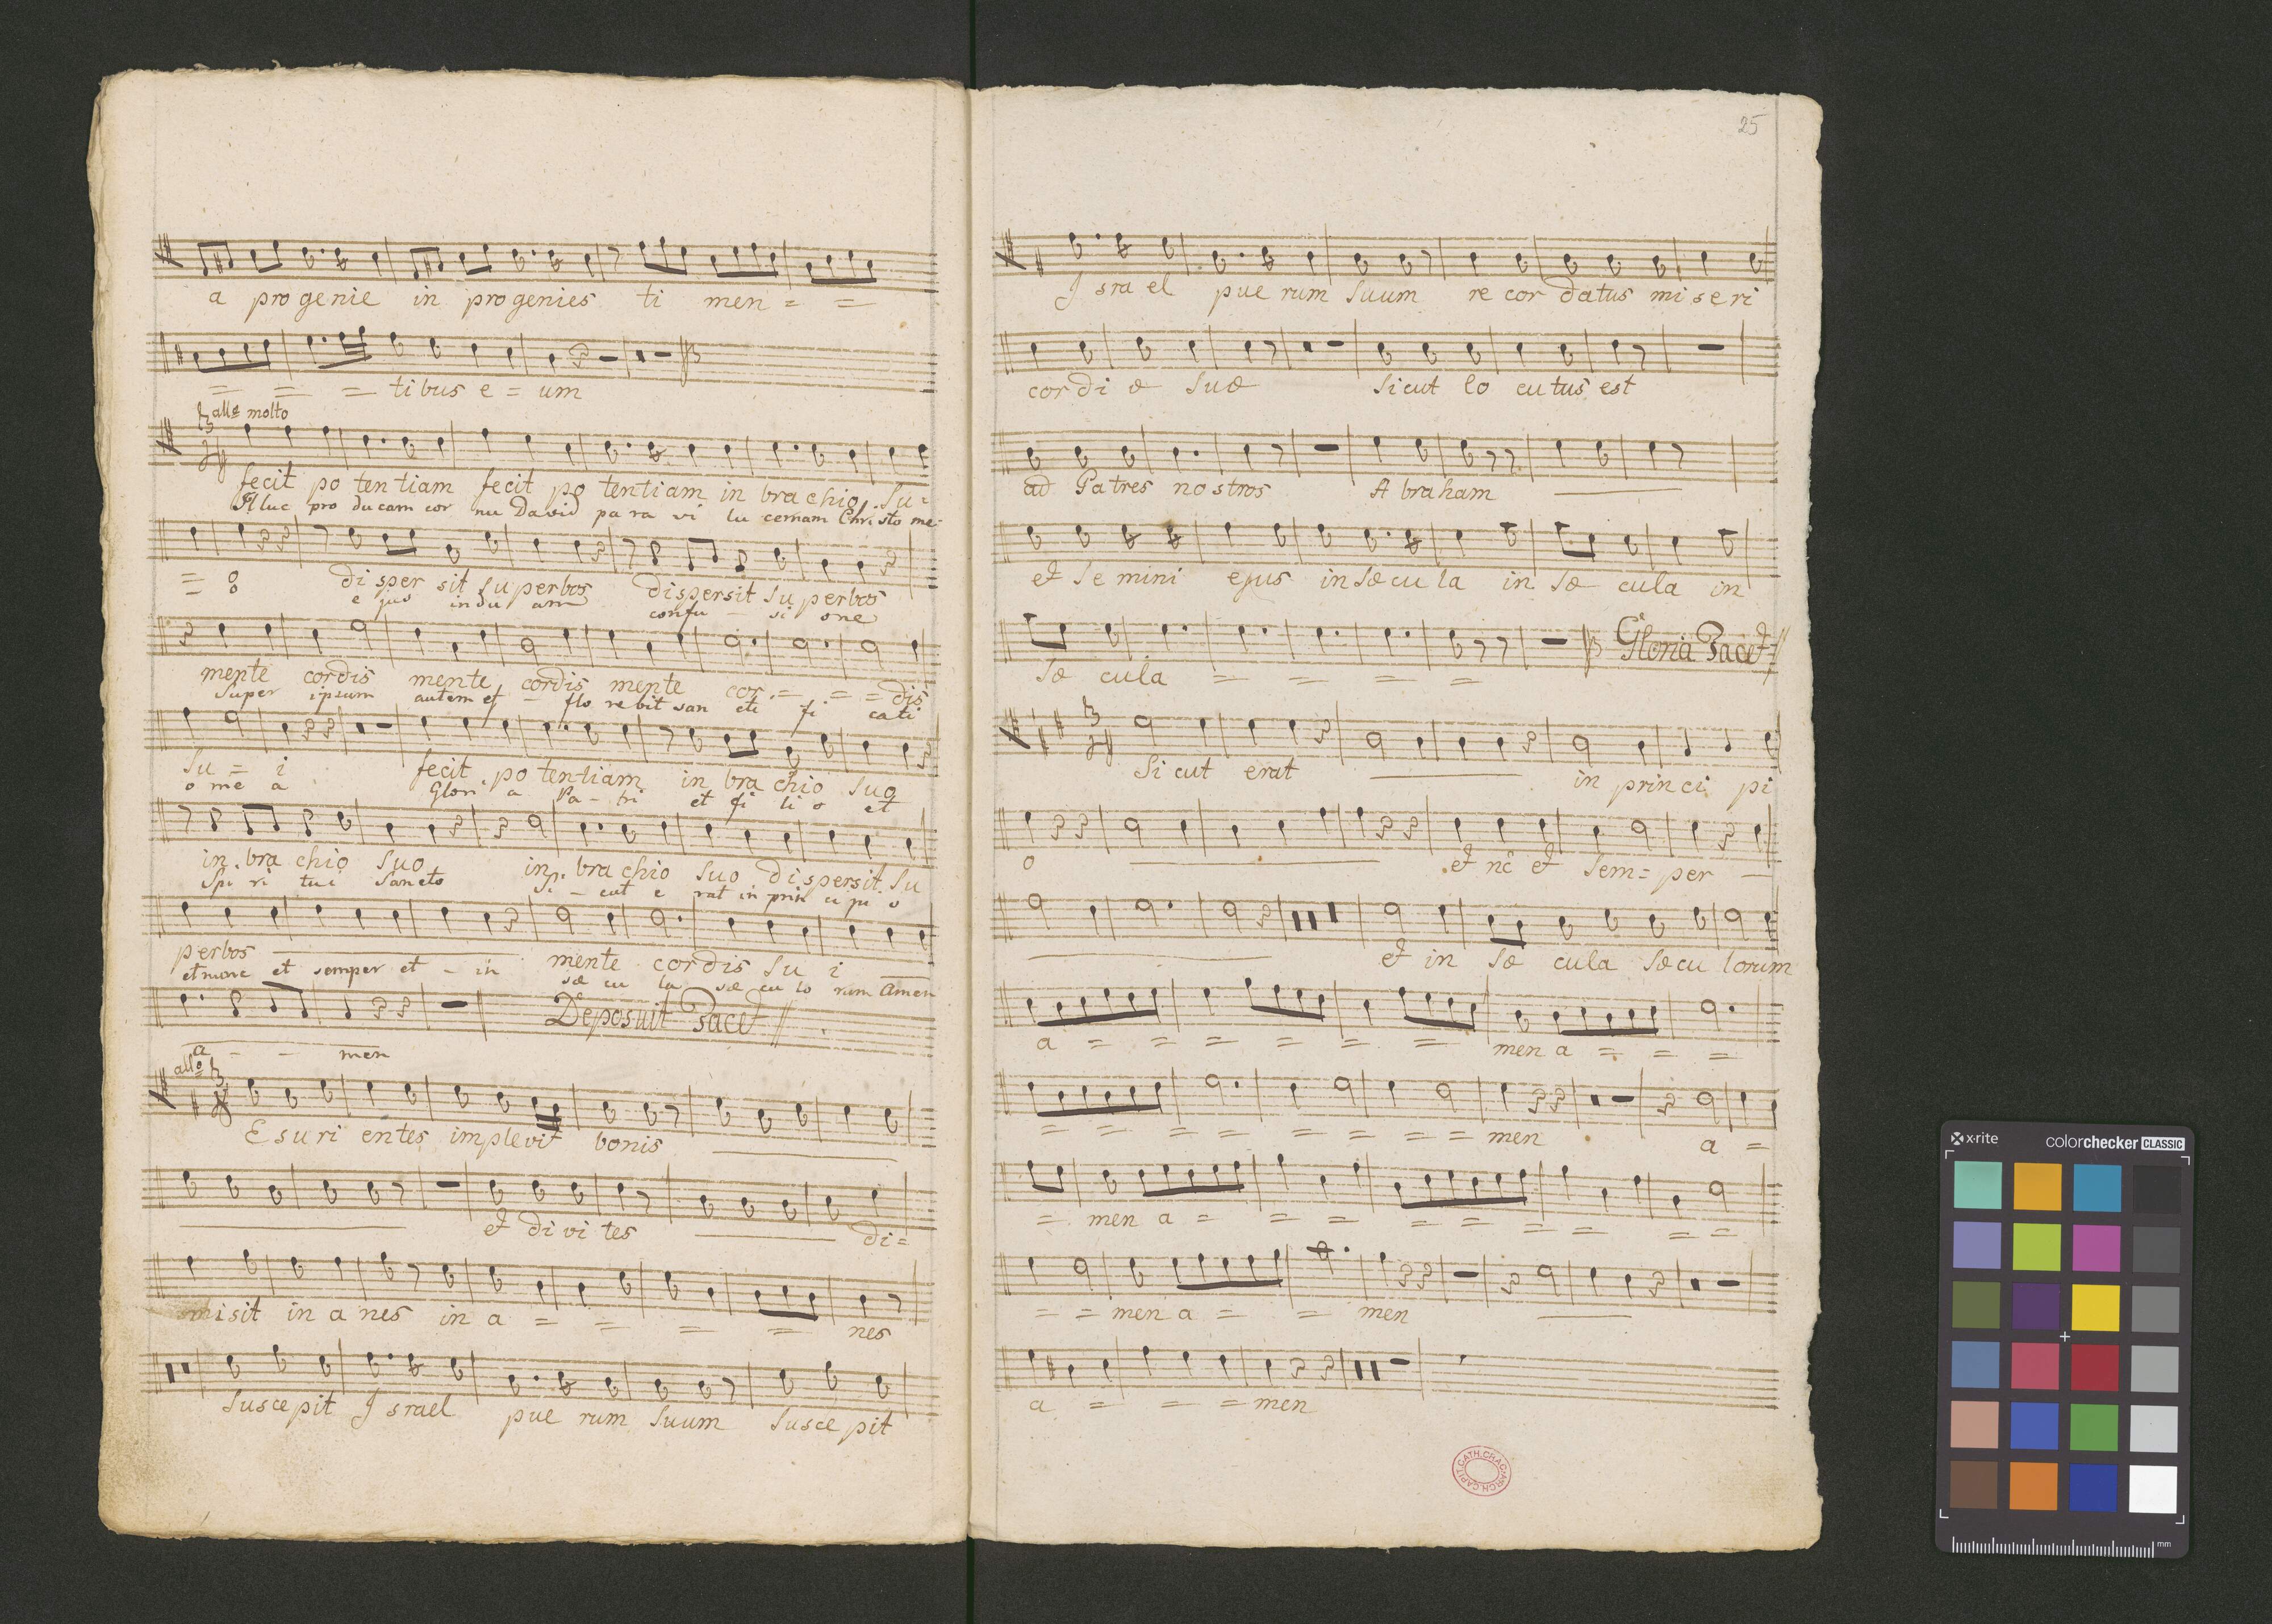 a pro genie in pro genies ti men = =
= = = ti bus e = um
allo molto
fecit po ten tiam fecit po tentiam in bra chio Su =
Illuc pro ducam cor nu David pa ra vi lu cernam Christo me-
= o di sper sit Superbos dispersit Su perbos
e jus indu am confu - si one
mente cordis mente cordis mente cor = = = dis
Super ipsum autem ef - flo re bit san cti fi cati
Su = i fecit po ten tiam in bra chio Suo
o me a Glori a Pa - tri et fi li o et
in bra chio Suo in bra chio Suo dispersit Su
Spi ri tui Sancto Si - cut e rat in prin ci pi o
perbos mente cordis Su i
et nunc et semper et - in sæ cu la sæ cu lo rum Amen
Deposuit Tacet
a - - men
allo 3
E su ri entes implevit bonis
et di vi tes di =
misit in a nes in a = = = = nes
Susce pit J srael pue rum Suum Susce pit
25
J sra el pue rum Suum re cor datus mi se ri
cor di æ Suæ Sicut lo cu tus est
ad Patres no stros A bra ham
et Se mini ejus in Sæ cu la in Sæ cula in
Sæ cula = = = = Gloria Tacet
3
Si cut erat in prin ci pi
o et nc et Sem = per
et in Sæ cula Sæ cu lorum
a = = = = = = men a = = =
= = = = = = = = men a =
= men a = = = = = = = = =
= = men a = = men
a = = = men
ARCH.CAPIT.CATH.CRAC.
x-rite colorchecker CLASSIC
mm